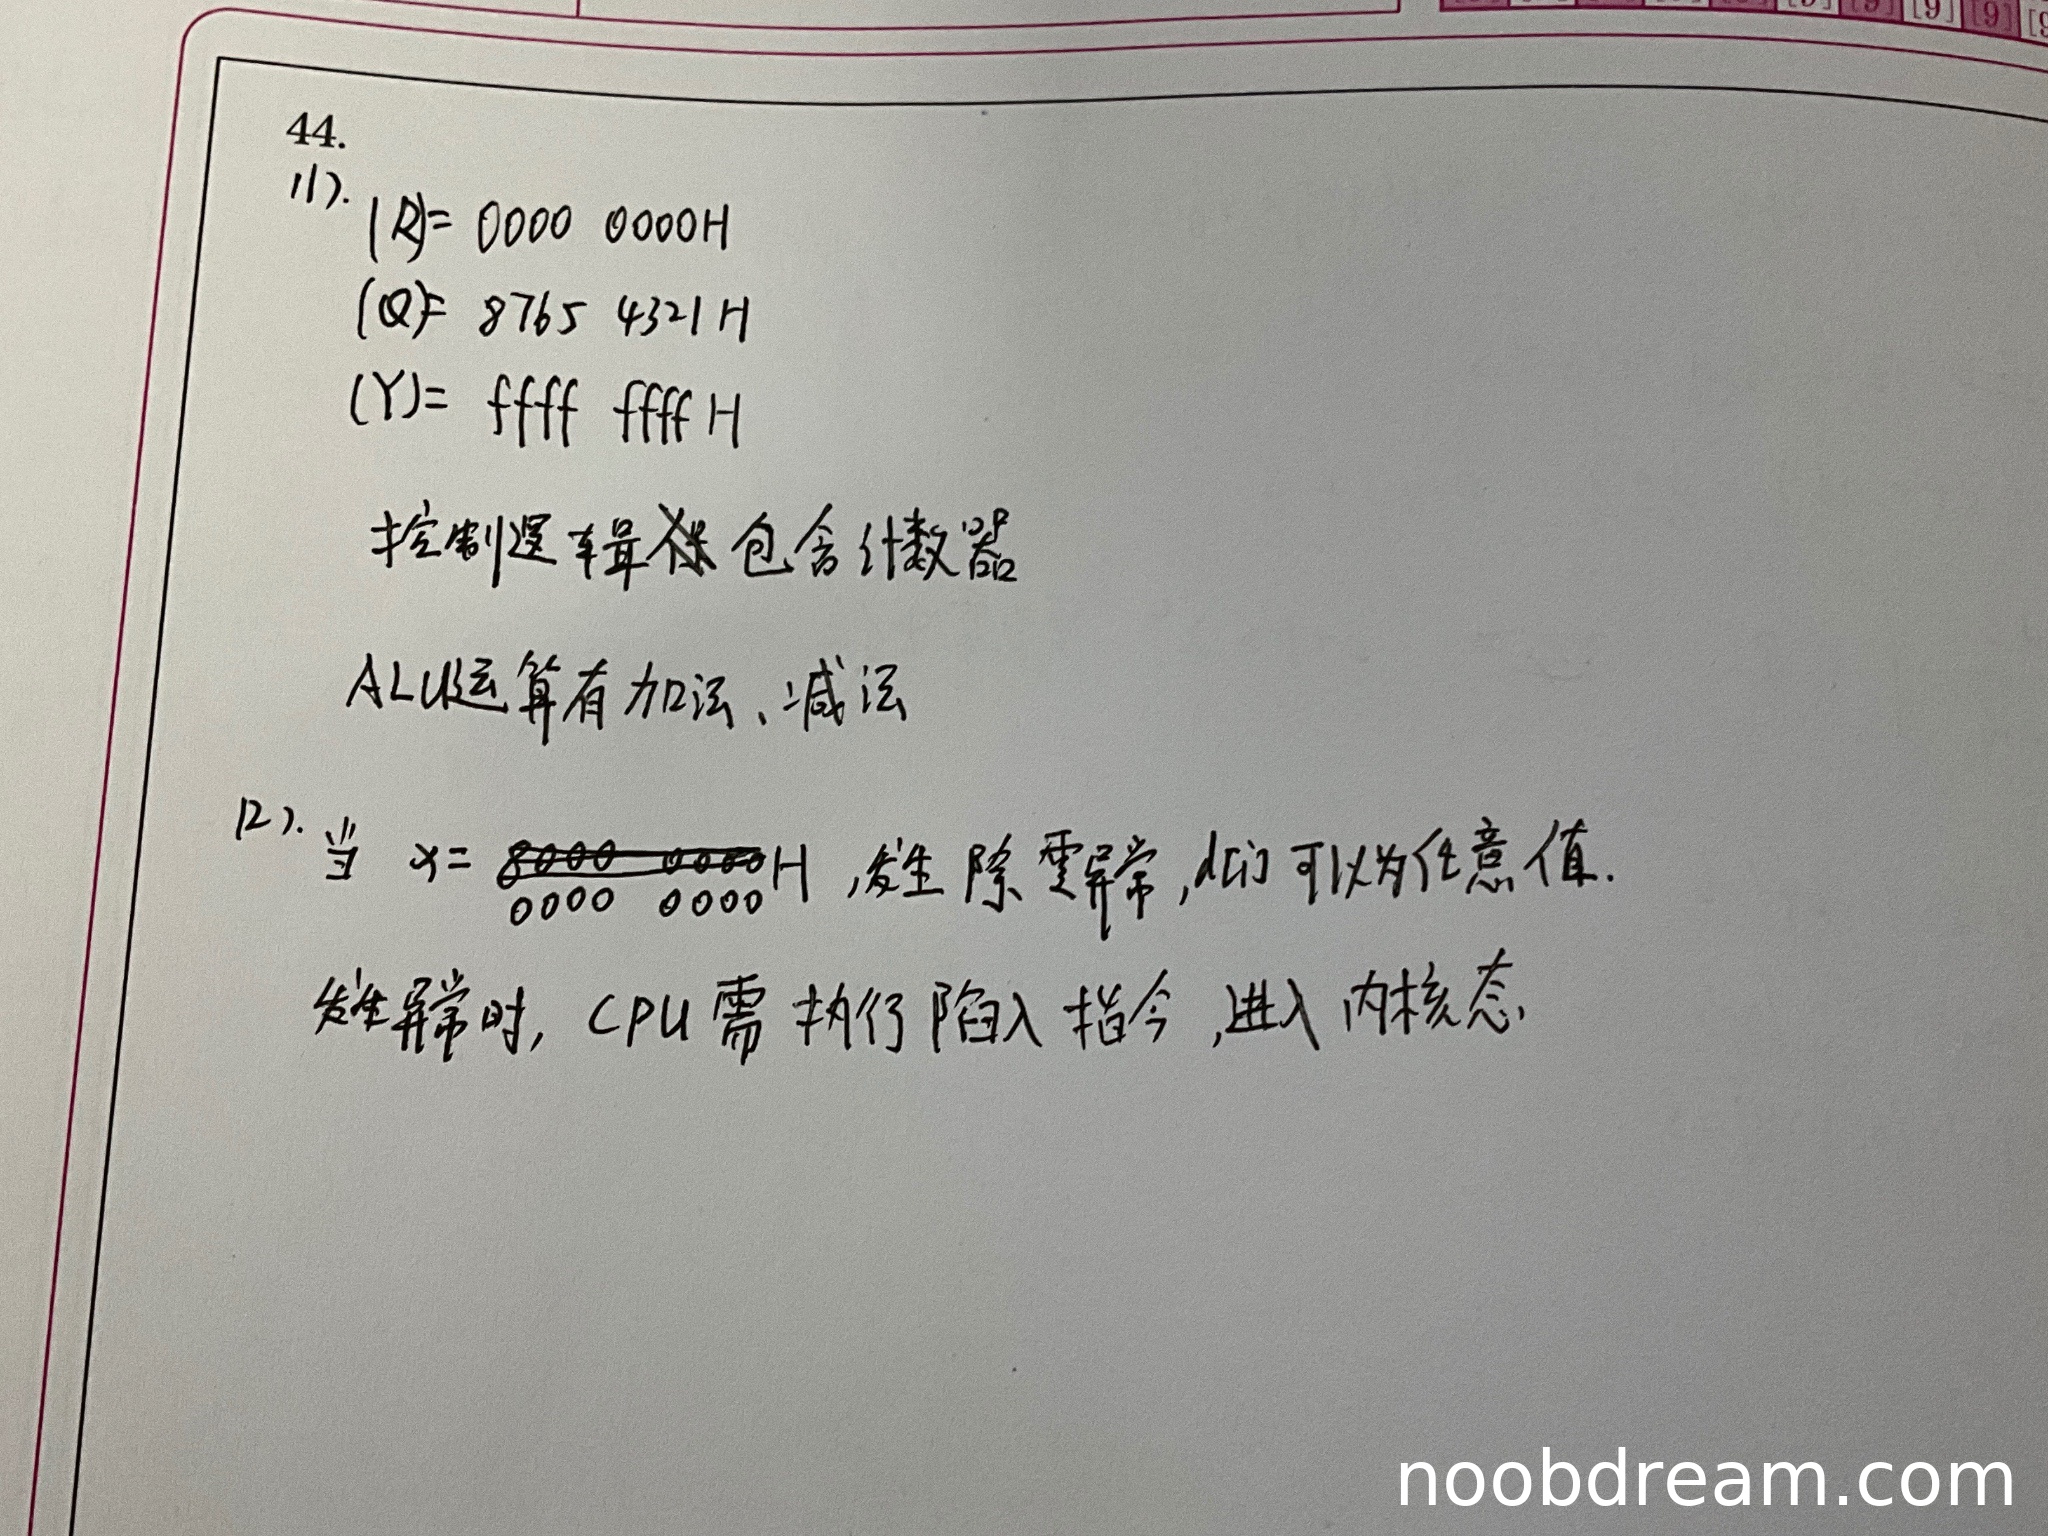 [9] [9] [9] [9]
44.
(1).
(R)= 0000 0000H
(Q)= 8765 4321H
(Y)= ffff ffffH
控制逻辑包含计数器
ALU运算有加法、减法
(2). 当 x= 8000 0000 H ,发生除零异常,d[i]可以为任意值.
0000 0000
发生异常时, CPU需执行陷入指令,进入内核态.
noobdream.com